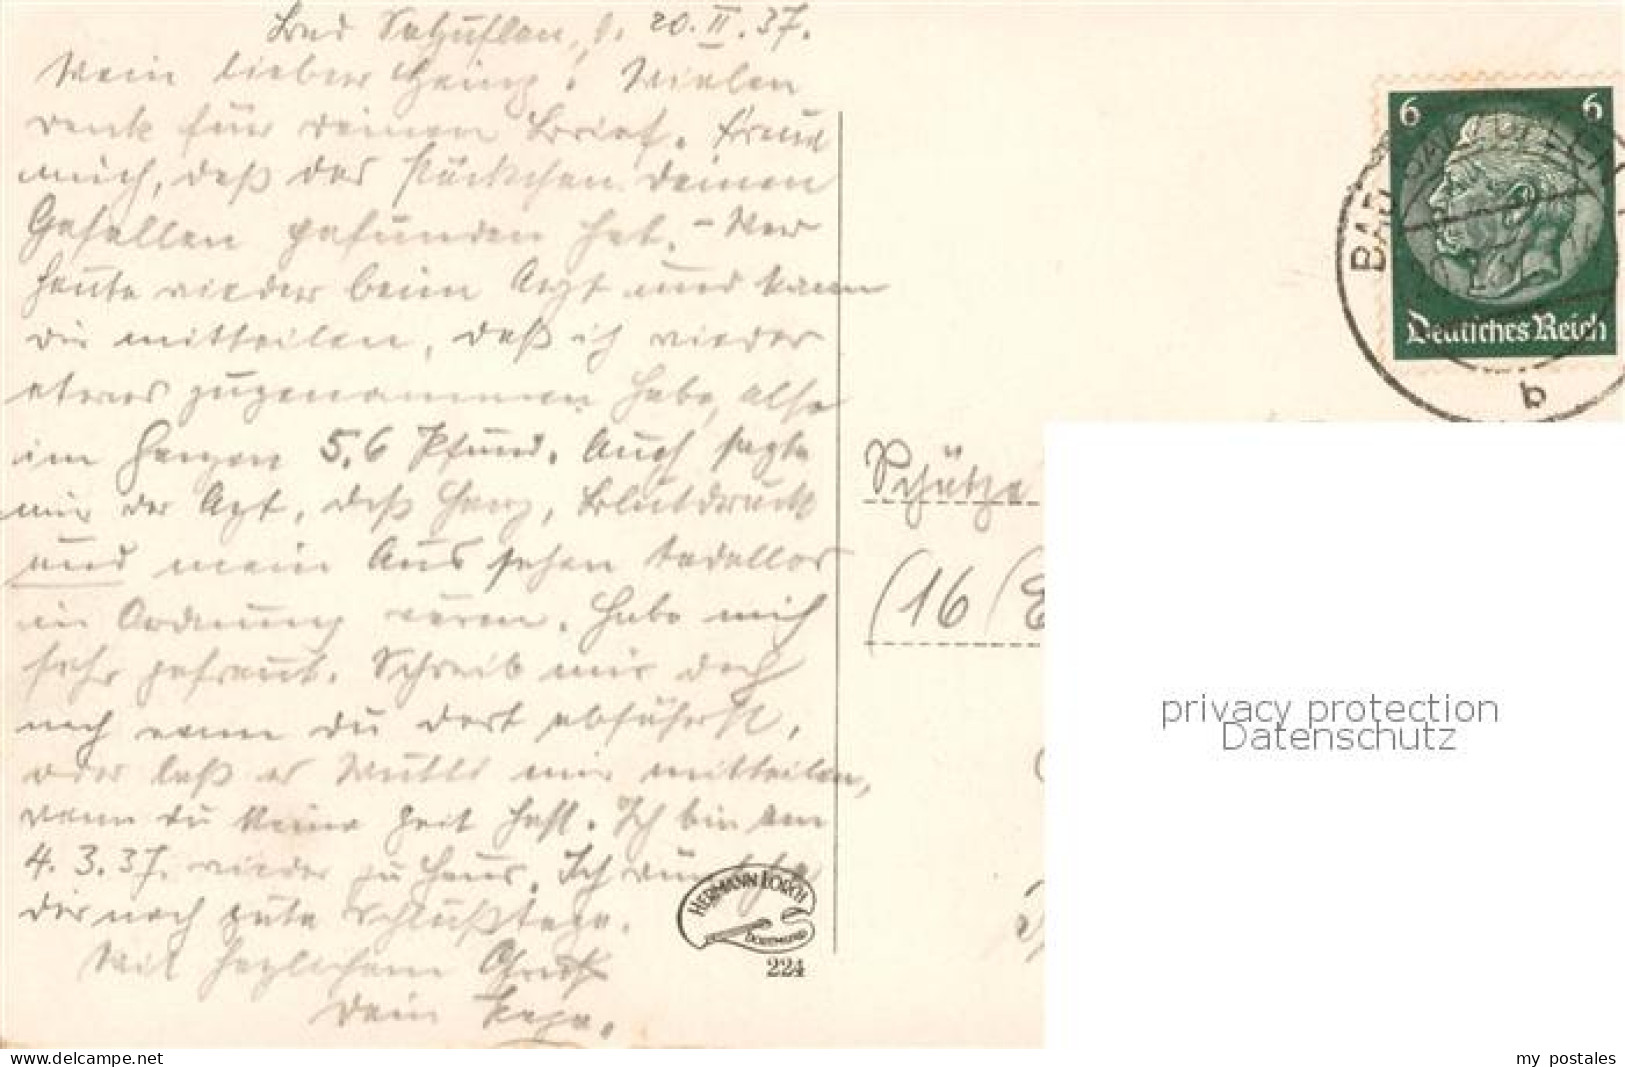 Bad Salzuflen, d. 20.II.37.
Mein lieber Heinz! Vielen
Dank für deinen Brief. Freut
mich, daß das Päckchen deinen
Gefallen gefunden hat. - War
heute wieder beim Arzt und kann
dir mitteilen, daß ich wieder
etwas zugenommen habe, also
im Ganzen 5,6 Pfund. Auch sagte
mir der Arzt, daß Herz, Blutdruck
und mein Aussehen tadellos
in Ordnung wären. Habe mich
sehr gefreut. Schreib mir doch
noch wann du dort abfährst,
oder laß es Mutti mir mitteilen,
wenn du keine Zeit hast. Ich bin am
4.3.37. wieder zu Haus. Ich wünsche
dir noch gute Schlußtage.
Mit herzlichem Gruß
Dein Papa.
HERMANN LORCH
DORTMUND
224
6 6
Deutsches Reich
BAD SALZUFLEN
b
Schütze
(16
privacy protection
Datenschutz
www.delcampe.net
my postales